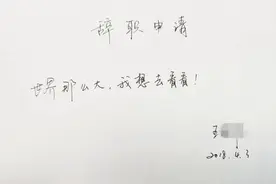 辞职申请
世界那么大，我想去看看！
王
2018.4.3